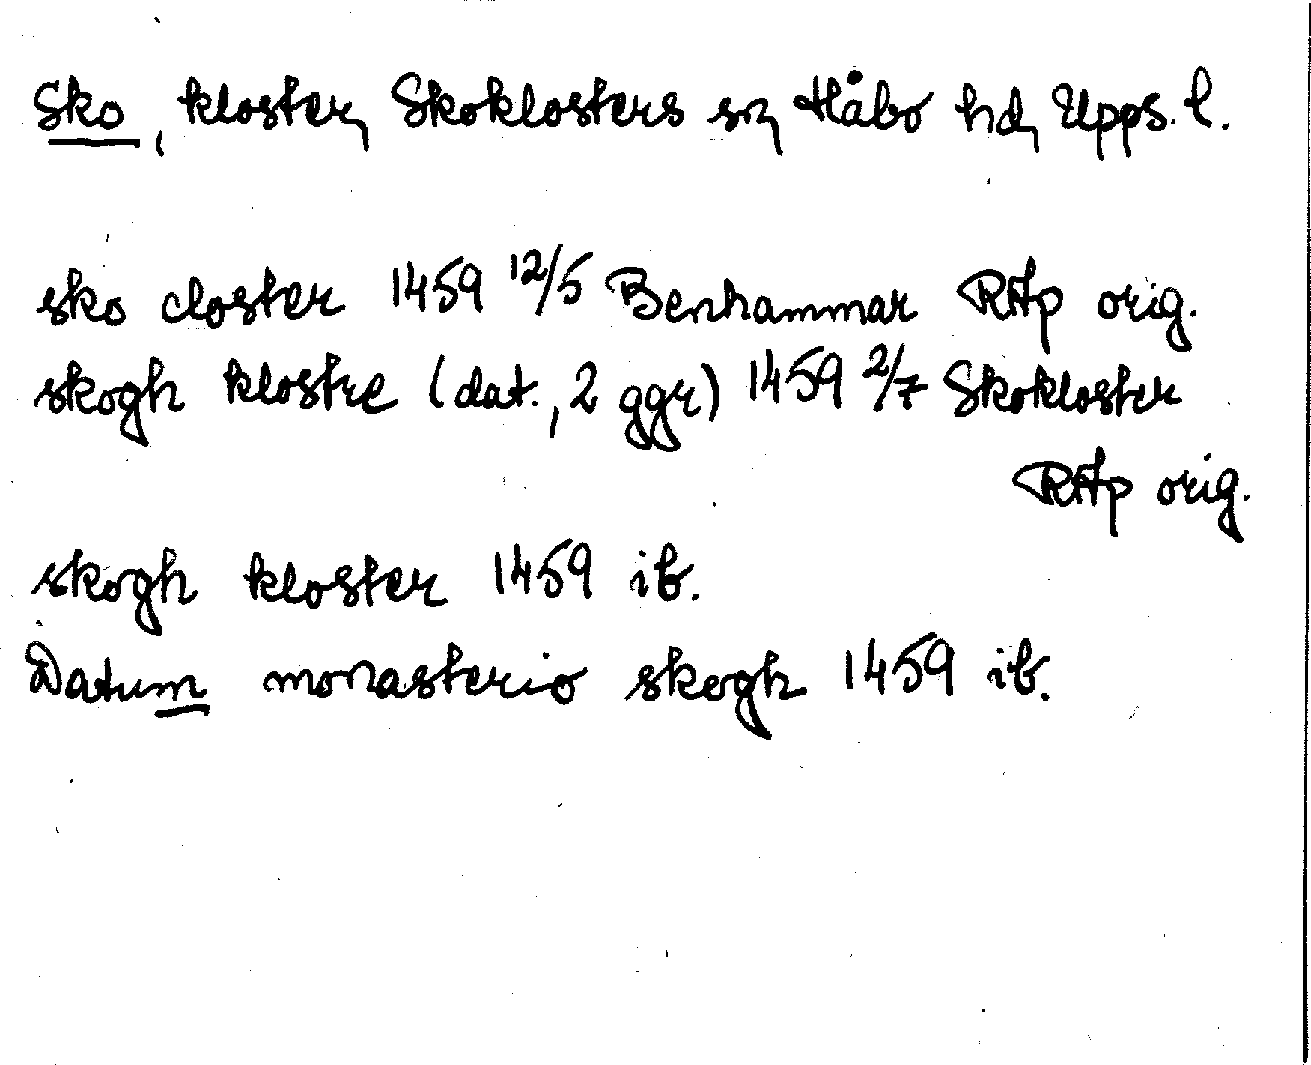 Sko, kloster, Skoklosters sn, Håbo hd, Upps. l.
sko closter 1459 12/5 Benhammar RAp orig.
skogh klostre (dat., 2 ggr) 1459 2/7 Skokloster
RAp orig.
skogh kloster 1459 ib.
Datum monasterio skogh 1459 ib.